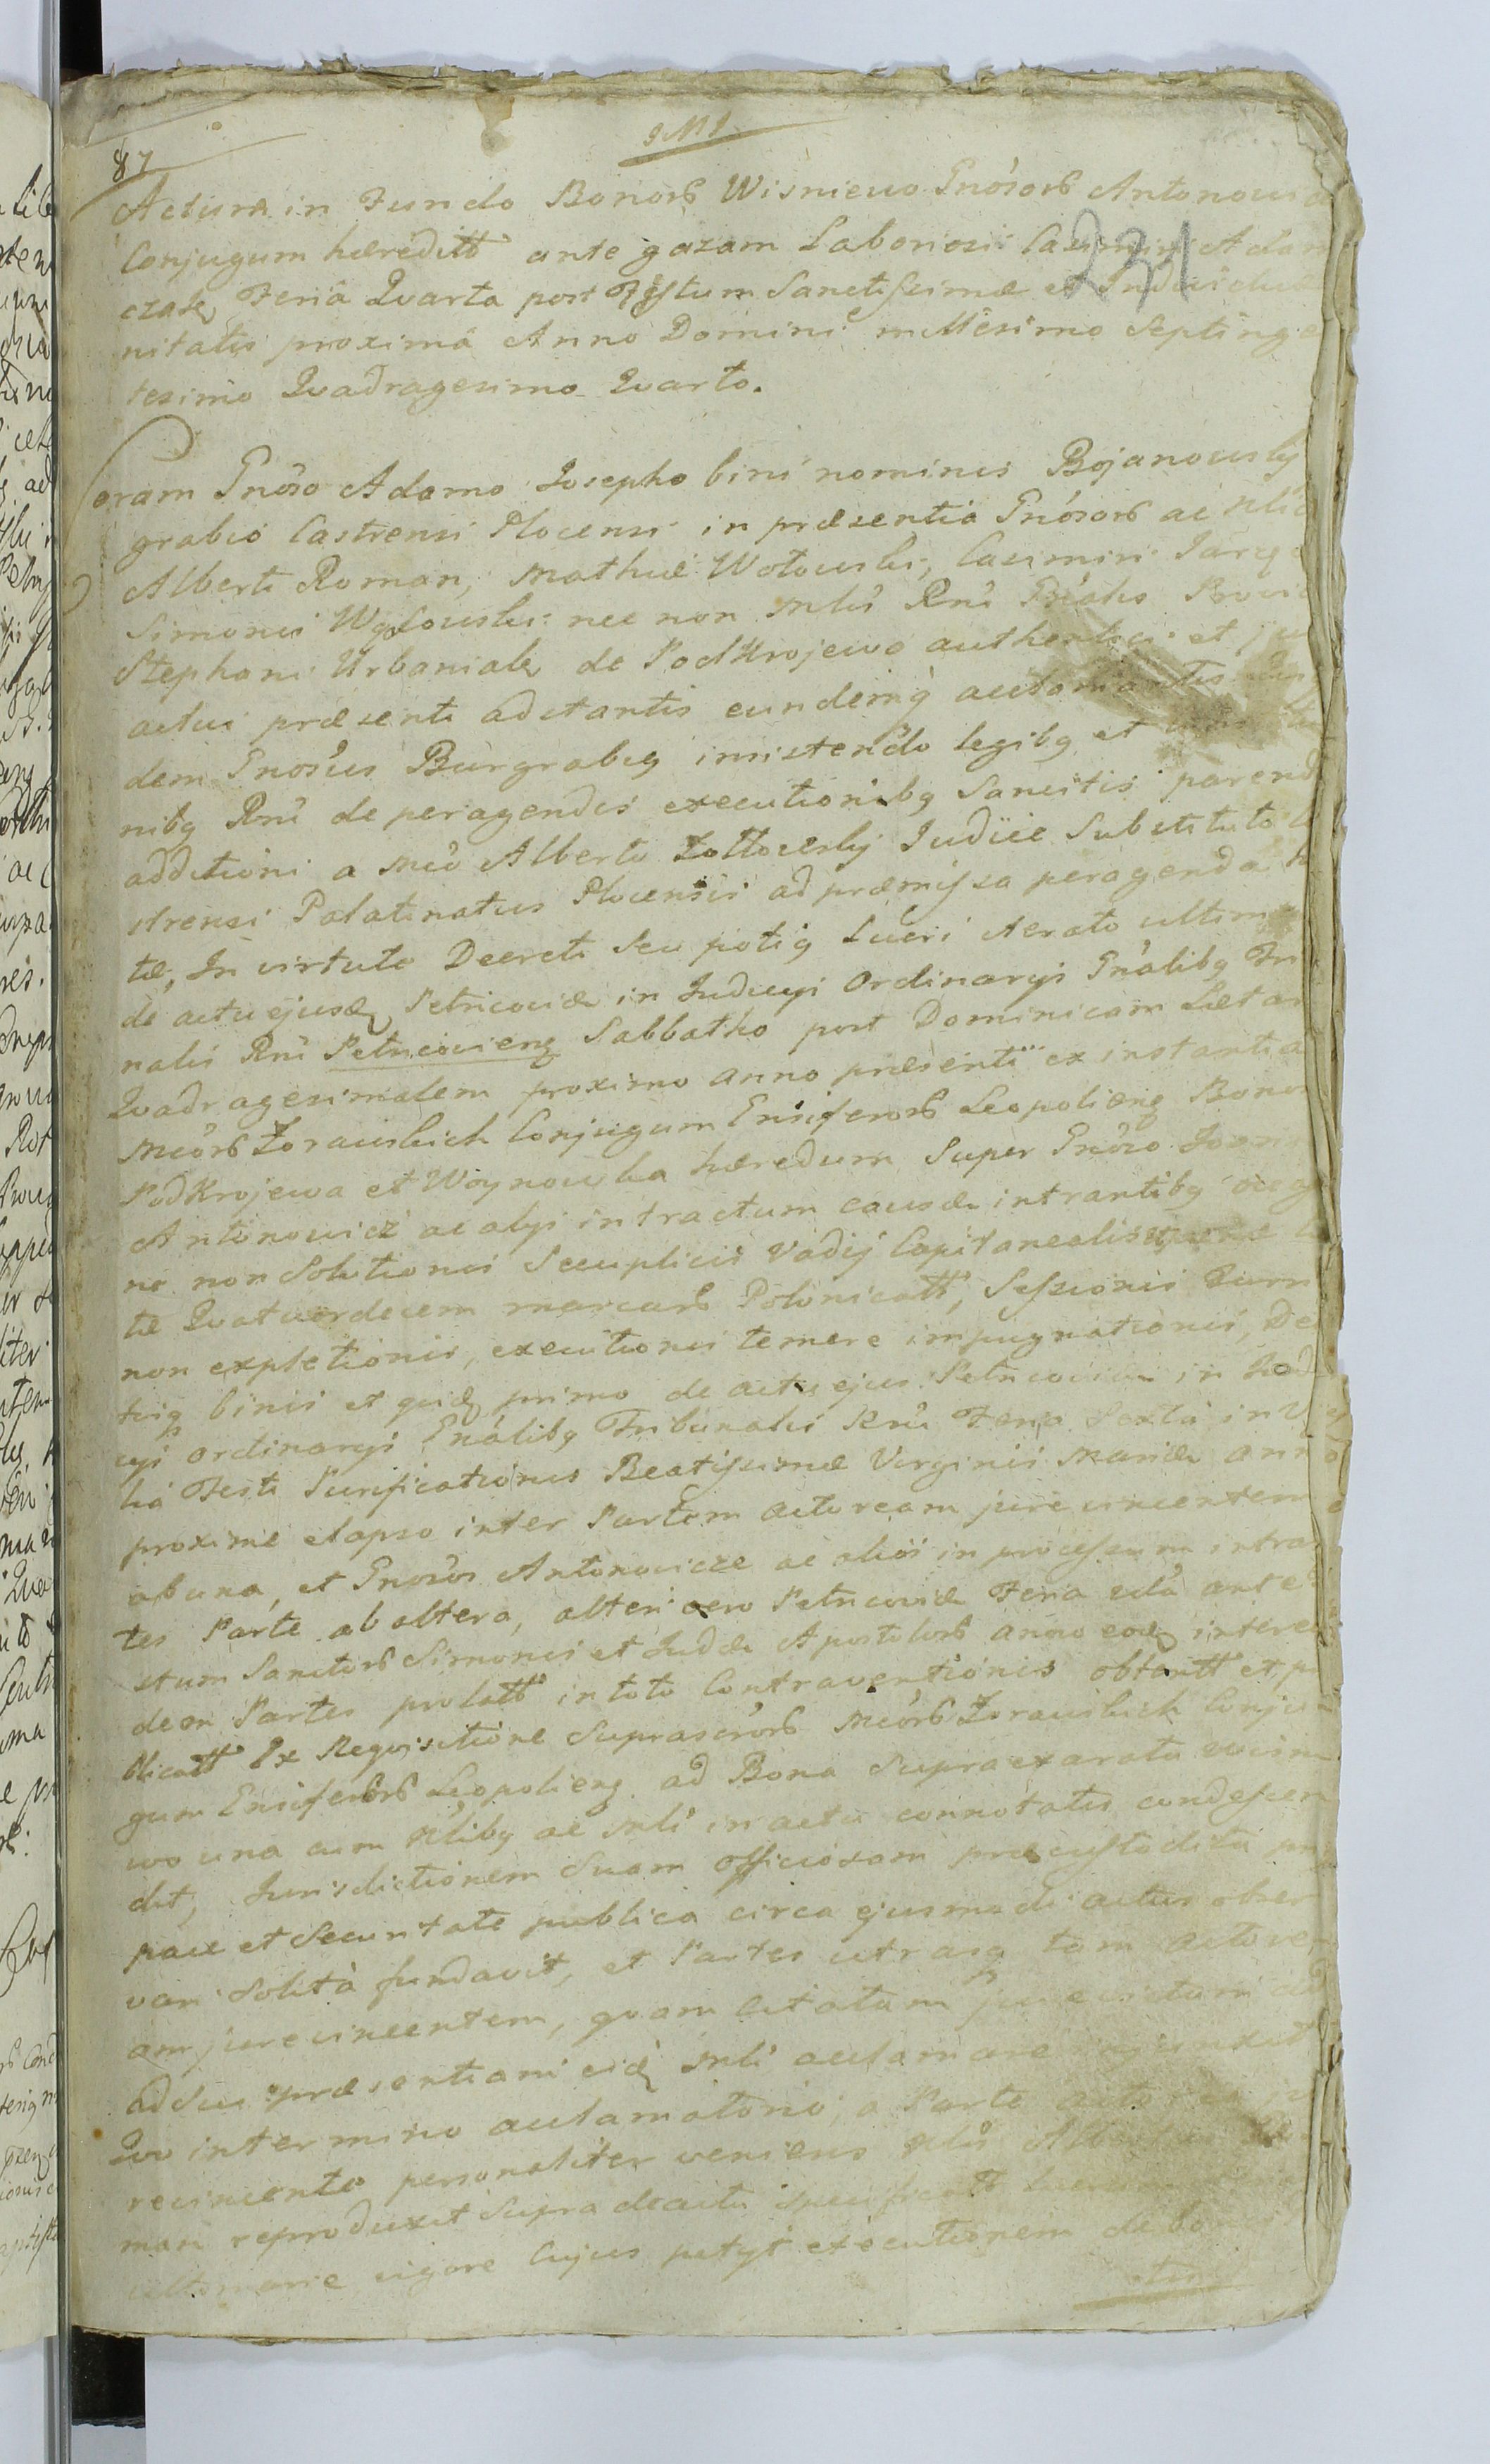 JMJ
87
231
Actum in Fundo Bonorb Wisniewo Gnósorb Antonowi
Conjugum hæreditt ante gazam Laboriosi Casimiri Adam
czak Feria Qvarta post Festum Sanctissimæ et Individuæ
nitatis proximâ Anno Domini millesimo Septinge
tesimo Qvadragesimo Qvarto.
Coram Gnôso Adamo Josepho bini nominis Bojanowsky
grabio Castrensi Plocensi in præsentia Gnósorb ac Nli
Alberti Roman, Mathiæ Wołowski, Casimiri
Simonis nec non Mlî Rnî Gnális
Stephani Urbaniak de Podkrojewo authentici et ju
actui præsenti adstantis eundemq
dem Gnosûs Burgrabig insistendo legibg et
nibg Rnî de peragendis executionibg Sancitis parend
additioni a Mcô Alberto Judice Substituto
strensi Palatinatus Plocensis ad præmissa peragenda
tæ, In virtute Decreti seu potig Lucri Aerato ultim
de actu ejusd Petricoviæ in Judicyi Ordinaryi Gnálibg Tri
nalis Rnî Petricovieng Sabbatho post Dominicam Læta
Qvadragesimalem proximo anno præsenti ex instantia
Mcórb Zorawskich Conjugum Ensiferorb Leopolieng Bono
Podkrojewa et Woynowka hæredum Super Gnôso Joann
Antonowicz ac alyi in tractum causæ intrantibg
ne non Solutionis Scuplicis Vadij Capitanealis
tæ Qvatuordecem marcarb Polonicatt, Sessionis turri
non expletionis, executionis temere impugnationis, De
tiig binis et quid primo de actu ejus Petricoviæ in Judi
cyi ordinaryi Gnálibg Tribunalis Rnî Feria Sexta in Vi
lia Festi Purificationis Beatissimæ Virginis Mariæ ann
proxime elapso inter Partem actoream jure vincentem
ab una, et Gnosós Antonowicze ac aliós in processum intran
tes Parte ab altera, alteri vero Petricoviæ Feria ante
stum Sanctorb Simonis et Judæ Apostolorb anno eod inter e
dem Partes prolatt in toto Contraventionis obtentt et
blicatt Ex Reqvisitione Suprascrórb Mcórb Zorawskich Conju
gum Ensiferórb Leopolieng ad Bona Supra exarata
wo una cum Nlibg ac Mli in actu connotatis condescen
dit, Jurisdictionem Suam officiosam præcustodita
pace et Securitate publica circa ejusmodi actus obser
vari Solita fundavit, et Partes utrasq tam actore
am jure vincentem, qvam citatam jure victam ad
ad Sui præsentiam eid Mli acclamare injunxit
Qvo in termino acclamatorio, a Parte actorea ju
re vincente personaliter veniens Nlîs Albertus Ro
man reproduxit Supra de actu specificatt lucrum
ultimarie vigore Cujus petyt executionem de bonis